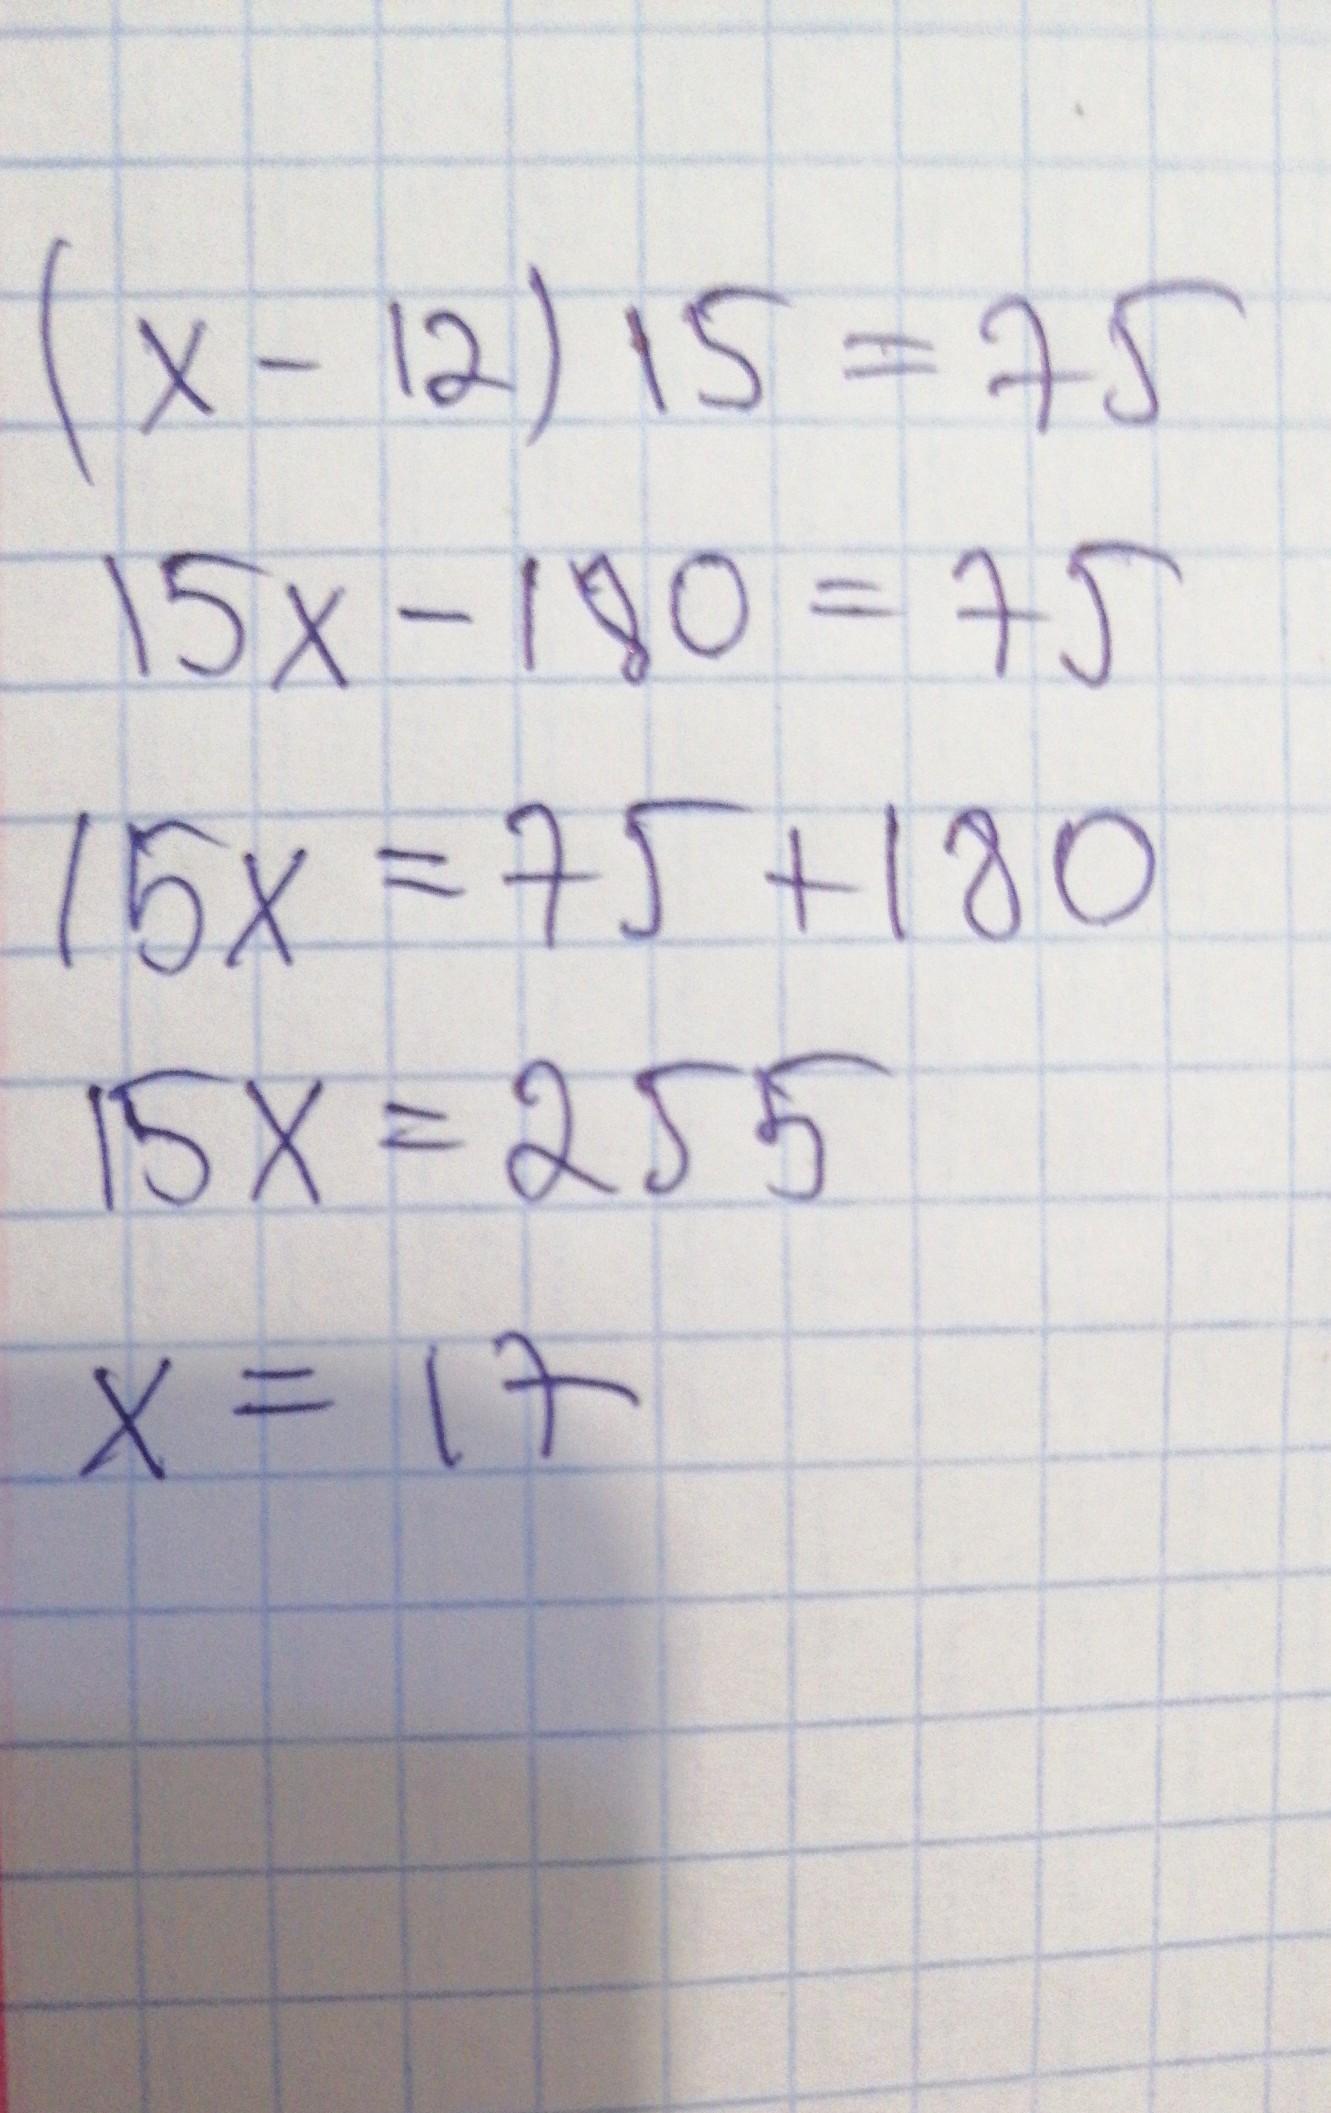 (x - 12) 15 = 75
15x - 180 = 75
15x = 75 + 180
15x = 255
x = 17